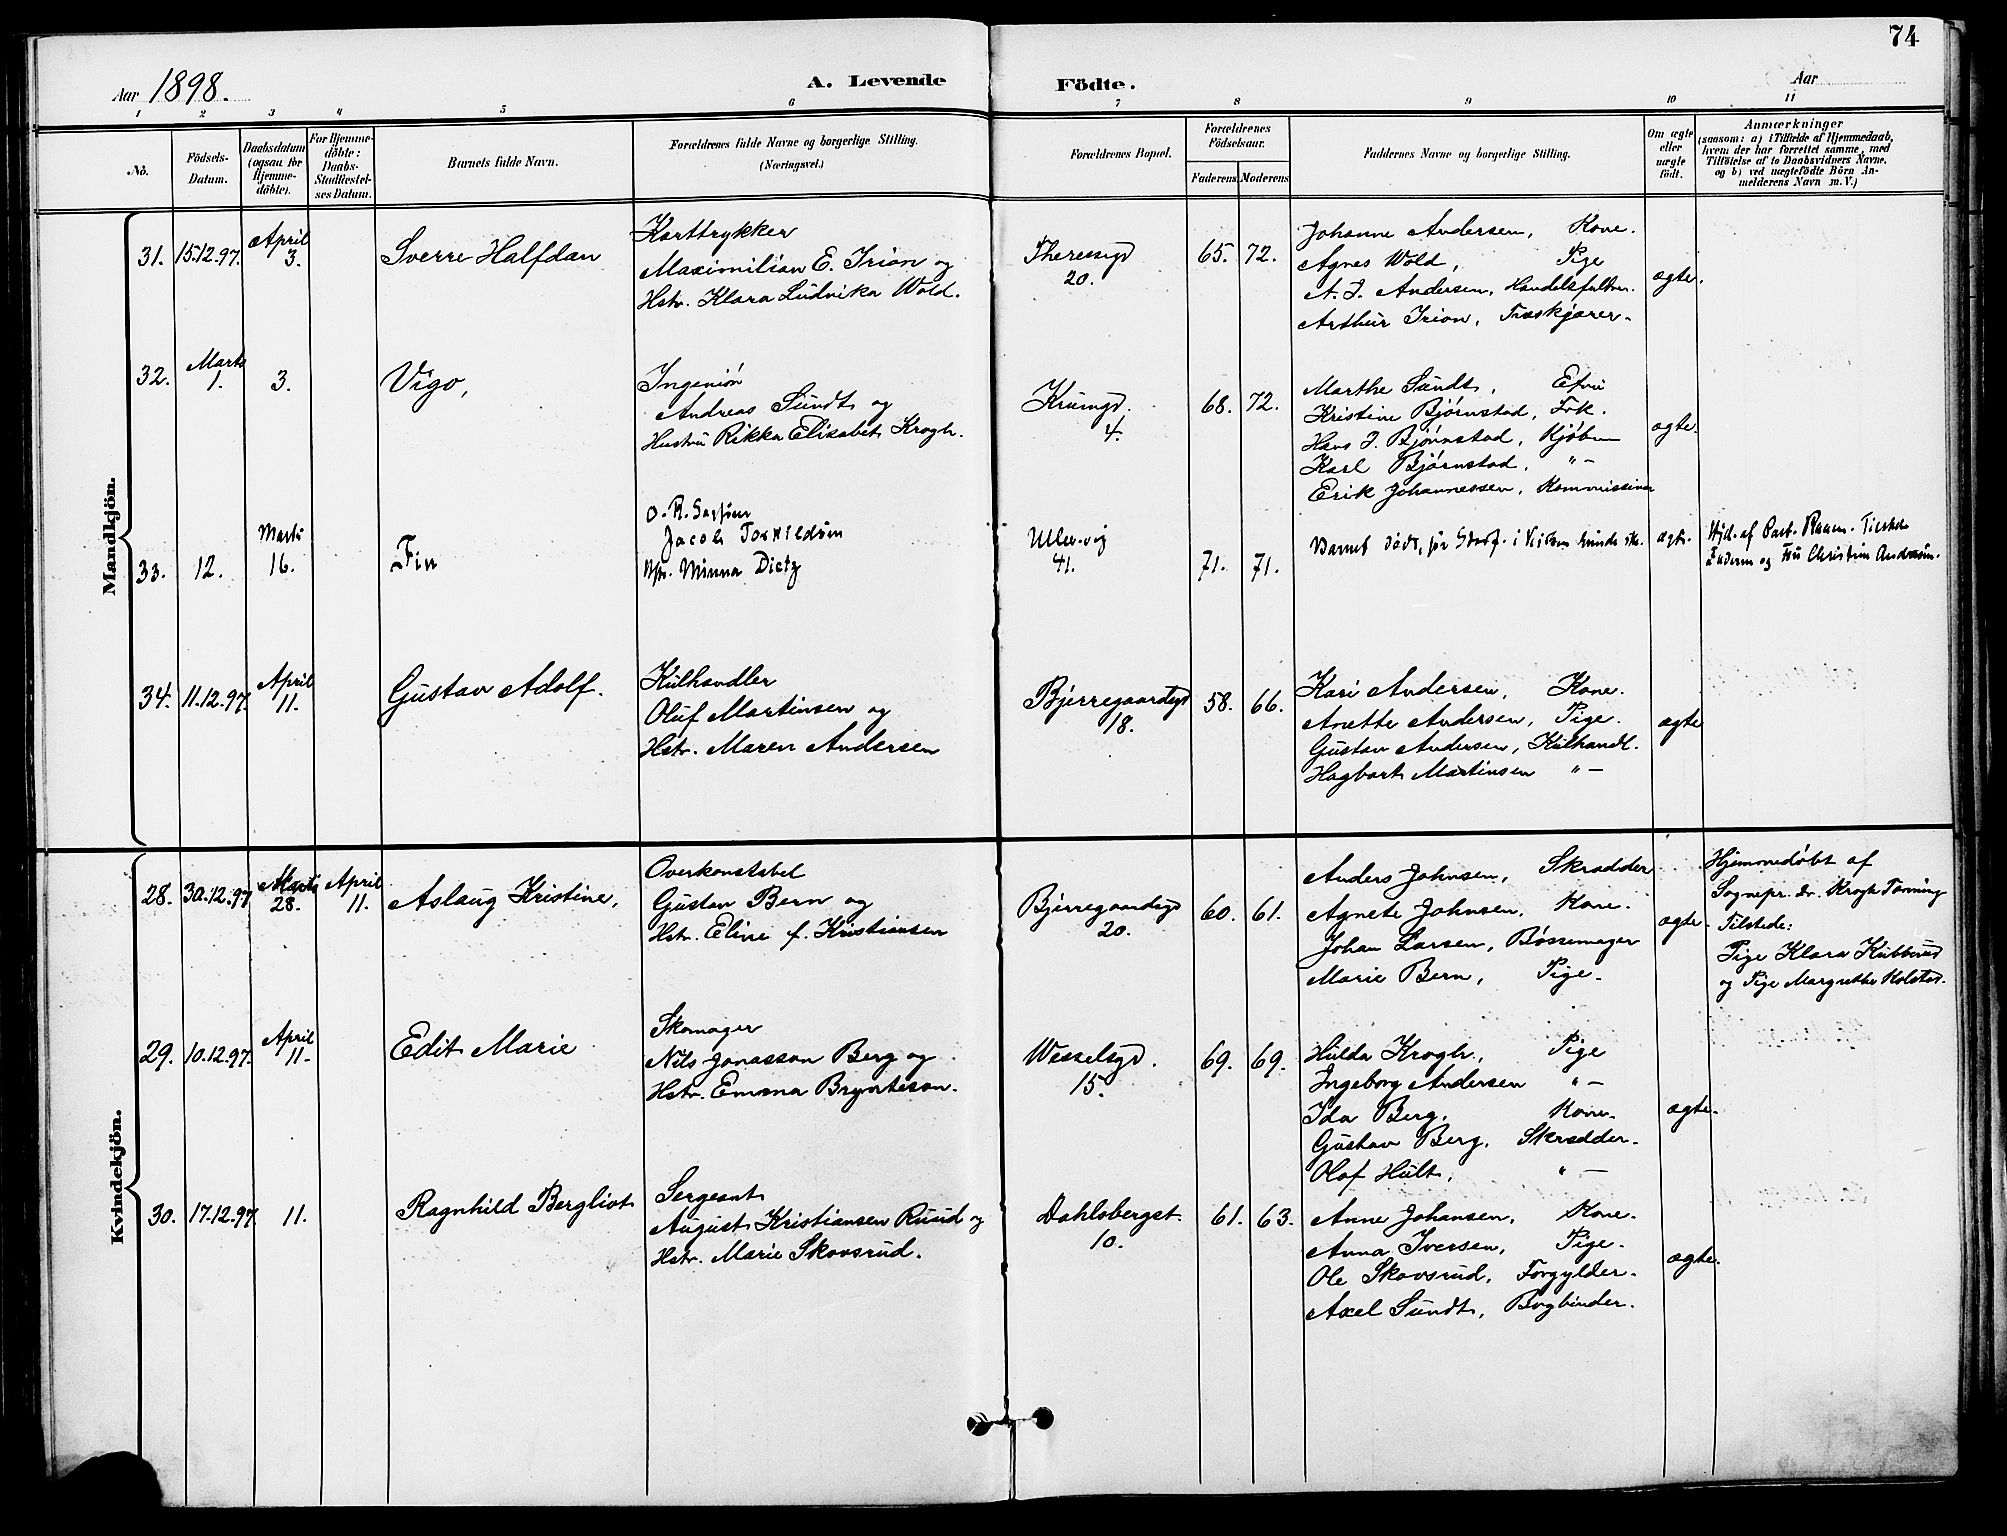 74
Aar 1898.
A. Levende Födte.
Aar
1 2 3 4 5 6 7 8 9 10 11
No.
Födsels-Datum.
Daabsdatum (ogsaa for Hjemmedöbte).
For Hjemmedöbte: Daabs-Stadfæstelses Datum.
Barnets fulde Navn.
Forældrenes fulde Navne og borgerlige Stilling.
(Næringsvei.)
Forældrenes Bopæl.
Forældrenes Födselsaar.
Faderens Moderens
Faddernes Navne og borgerlige Stilling.
Om ægte eller uægte födt.
Anmærkninger
(saasom: a) i Tilfælde af Hjemmedaab,
hvem der har forrettet samme, med
Tilföielse af to Daabsvidners Navne,
og b) ved uægtefödte Börn An-
melderens Navn m. V.)
Mandkjön.
31. 15.12.97. April 3. Sverre Halfdan
Karttrykker
Maximilian E. Irion og
Hstr. Klara Ludvika Wold.
Theresegd 20.
65. 72.
Johanne Andersen, Kone.
Agnes Wold, Pige
A. J. Andersen, Handelsfuldm.
Arthur Irion, Træskjærer.
ægte.
32. Marts 1. 3. Vigo,
Ingeniør
Andreas Sundt og
Hustru Rikka Elisabet Krogh.
Krumgd. 4.
68. 72.
Marthe Sundt, Efru
Kristine Bjørnstad, Frk.
Hans J. Bjørnstad, Kjøbm
Karl Bjørnstad, "-
Erik Johannessen, Kommissionær
ægte.
33. 12. Marts 16. Fin
Jacob Torkildsen
Hstr. Minna Dietz
Ullev.vei 41.
71. 71.
Barnet døde, før
ægte.
Hjd. af Past. Raaen. Tilstede
Faderen og Fru Christine Andresen.
34. 11.12.97. April 11. Gustav Adolf.
Kulhandler
Oluf Martinsen og
Hstr. Maren Andersen
Bjerregaardsgd 18.
58. 66.
Kari Andersen, Kone.
Anette Andersen, Pige.
Gustav Andersen, Kulhandl.
Hagbart Martinsen "-
ægte
Kvindekjön.
28. 30.12.97 Marts 28. April 11. Aslaug Kristine,
Overkonstabel
Gustav Bern og
Hstr. Eline f. Kristiansen
Bjerregaardsgd 20.
60. 61.
Anders Johnsen, Skrædder
Agnete Johnsen, Kone.
Johan Larsen, Bøssemager
Marie Bern, Pige.
ægte.
Hjemmedøbt af
Sognepr. dr. Krogh Tonning
Tilstede:
Pige Klara Kubberud
og Pige Margrethe Kolstad.
29. 10.12.97. April 11. Edit Marie
Skomager
Nils Jonasson Berg og
Hstr. Emma Brynteson.
Wesselsgd. 15.
69. 69.
Hulda Krogh, Pige
Ingeborg Andersen "-
Ida Berg, Kone.
Gustav Berg, Skrædder.
Olof Hult, "-
ægte.
30. 17.12.97 11. Ragnhild Bergliot
Sergeant
August Kristiansen Ruud og
Hstr. Marie Skovsrud.
Dahlsbergst. 10.
61. 63.
Anne Johansen, Kone.
Anna Iversen, Pige.
Ole Skovsrud, Forgylder.
Axel Sundt, Bogbinder.
ægte.